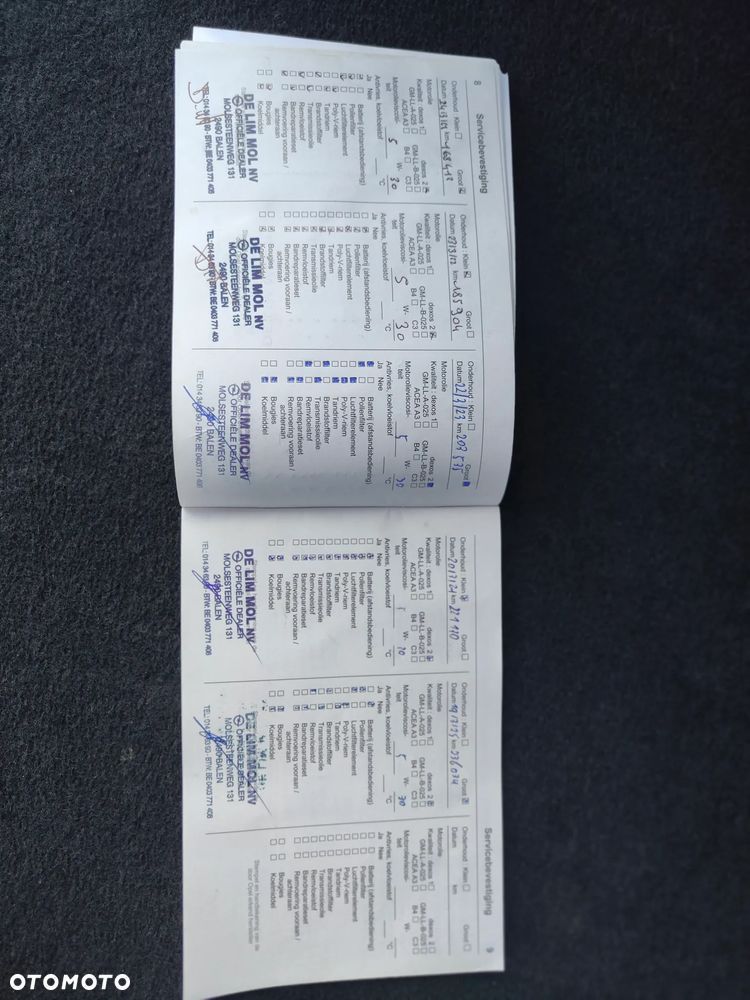 8 Servicebevestiging
Onderhoud Klein ☐ Groot ☒
Datum km 168 412
Motorolie
Kwaliteit: dexos 1 ☐ dexos 2 ☒
GM-LL-A-025 ☐ GM-LL-B-025 ☐
ACEA A3 ☐ B4 ☐ C3 ☐
Motorolieviscosi-
teit 5 W- 30
Antivries, koelvloeistof °C
Ja Nee
Batterij (afstandsbediening)
Pollenfilter
Luchtfilterelement
Poly-V-riem
Tandriem
Brandstoffilter
Transmissieolie
Remvloeistof
Bandreparatieset
Remvoering vooraan /
achteraan
Bougies
Koelmiddel
DE LIM MOL NV
OFFICIËLE DEALER
MOLSESTEENWEG 131
2490 BALEN
Onderhoud : Klein ☒ Groot ☐
Datum km 185 904
Motorolie
Kwaliteit : dexos 1 ☐ dexos 2 ☒
GM-LL-A-025 ☐ GM-LL-B-025 ☐
ACEA A3 ☐ B4 ☐ C3 ☐
Motorolieviscosi-
teit 5 W- 30
Antivries, koelvloeistof °C
Ja Nee
Batterij (afstandsbediening)
Pollenfilter
Luchtfilterelement
Poly-V-riem
Tandriem
Brandstoffilter
Transmissieolie
Remvloeistof
Bandreparatieset
Remvoering vooraan /
achteraan
Bougies
Koelmiddel
DE LIM MOL NV
OFFICIËLE DEALER
MOLSESTEENWEG 131
2490 BALEN
BTW: BE 0403 771 408
Onderhoud : Klein ☐ Groot
Datum km
Motorolie
Kwaliteit : dexos 1 ☐ dexos 2
GM-LL-A-025 ☐ GM-LL-B-025 ☐
ACEA A3 ☐ B4 ☐ C3 ☐
Motorolieviscosi-
teit 5 W- 30
Antivries, koelvloeistof °C
Ja Nee
Batterij (afstandsbediening)
Pollenfilter
Luchtfilterelement
Poly-V-riem
Tandriem
Brandstoffilter
Transmissieolie
Remvloeistof
Bandreparatieset
Remvoering vooraan /
achteraan
Bougies
Koelmiddel
DE LIM MOL NV
OFFICIËLE DEALER
MOLSESTEENWEG 131
2490 BALEN
BTW: BE 0403 771 408
Onderhoud : Klein ☒ Groot ☐
Datum km 221 110
Motorolie
Kwaliteit : dexos 1 ☐ dexos 2 ☒
GM-LL-A-025 ☐ GM-LL-B-025 ☐
ACEA A3 ☐ B4 ☐ C3 ☐
Motorolieviscosi-
teit W- 30
Antivries, koelvloeistof °C
Ja Nee
Batterij (afstandsbediening)
Pollenfilter
Luchtfilterelement
Poly-V-riem
Tandriem
Brandstoffilter
Transmissieolie
Remvloeistof
Bandreparatieset
Remvoering vooraan /
achteraan
Bougies
Koelmiddel
DE LIM MOL NV
OFFICIËLE DEALER
MOLSESTEENWEG 131
2490 BALEN
BTW: BE 0403 771 408
Servicebevestiging 9
Onderhoud : Klein ☐ Groot ☒
Datum km
Motorolie
Kwaliteit : dexos 1 ☐ dexos 2 ☒
GM-LL-A-025 ☐ GM-LL-B-025 ☐
ACEA A3 ☐ B4 ☐ C3 ☐
Motorolieviscosi-
teit 5 W- 30
Antivries, koelvloeistof °C
Ja Nee
Batterij (afstandsbediening)
Pollenfilter
Luchtfilterelement
Poly-V-riem
Tandriem
Brandstoffilter
Transmissieolie
Remvloeistof
Bandreparatieset
Remvoering vooraan /
achteraan
Bougies
Koelmiddel
DE LIM MOL NV
OFFICIËLE DEALER
MOLSESTEENWEG 131
2490 BALEN
BTW: BE 0403 771 408
Onderhoud : Klein ☐ Groot ☐
Datum km
Motorolie
Kwaliteit : dexos 1 ☐ dexos 2 ☐
GM-LL-A-025 ☐ GM-LL-B-025 ☐
ACEA A3 ☐ B4 ☐ C3 ☐
Motorolieviscosi-
teit W-
Antivries, koelvloeistof °C
Ja Nee
Batterij (afstandsbediening)
Pollenfilter
Luchtfilterelement
Poly-V-riem
Tandriem
Brandstoffilter
Transmissieolie
Remvloeistof
Bandreparatieset
Remvoering vooraan /
achteraan
Bougies
Koelmiddel
Stempel en handtekening van de
door Opel erkend hersteller
OTOMOTO